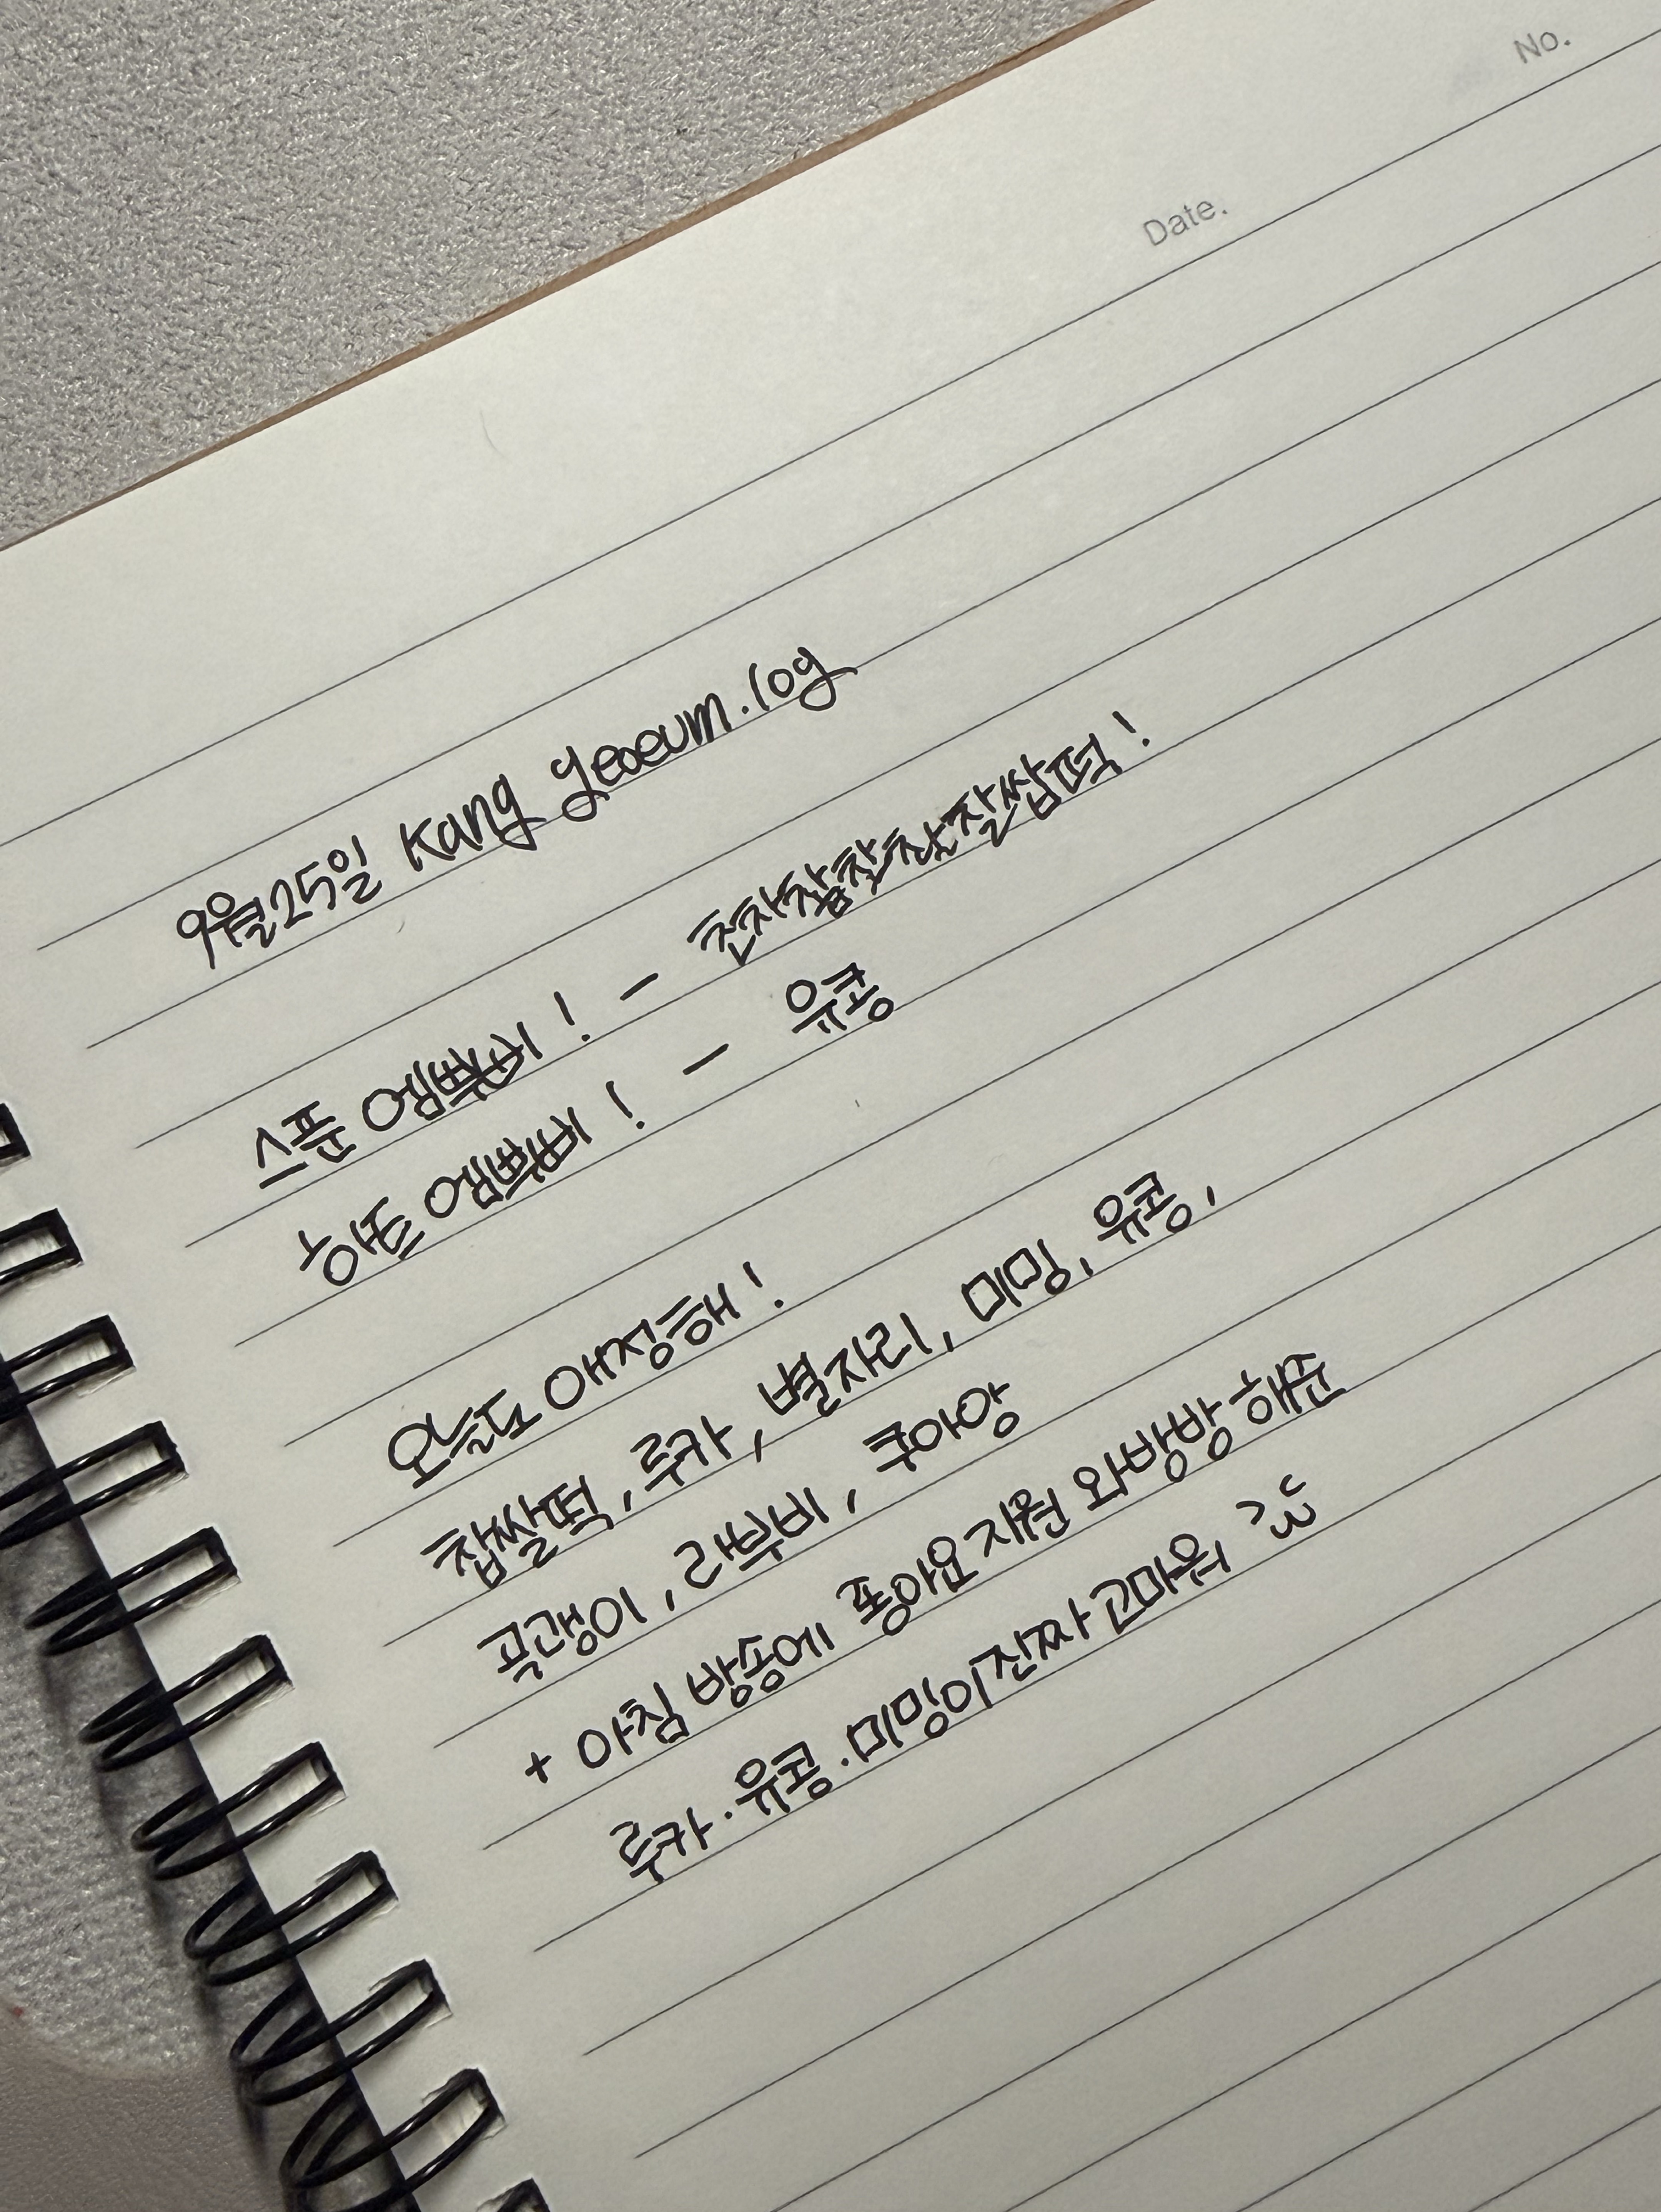 No.
Date.
9월25일 Kang yeoeum.log
스푼 엠뿌삐! -
하트 엠뿌삐! - 유콩
오늘도 애정해!
찹쌀떡, 루카, 별자리, 미밍, 유콩,
곡갱이, 라부비, 쿠아앙
+ 아침 방송에 퐁아요 지원 와방방 해준
루카·유콩·미밍이 진짜 고마워